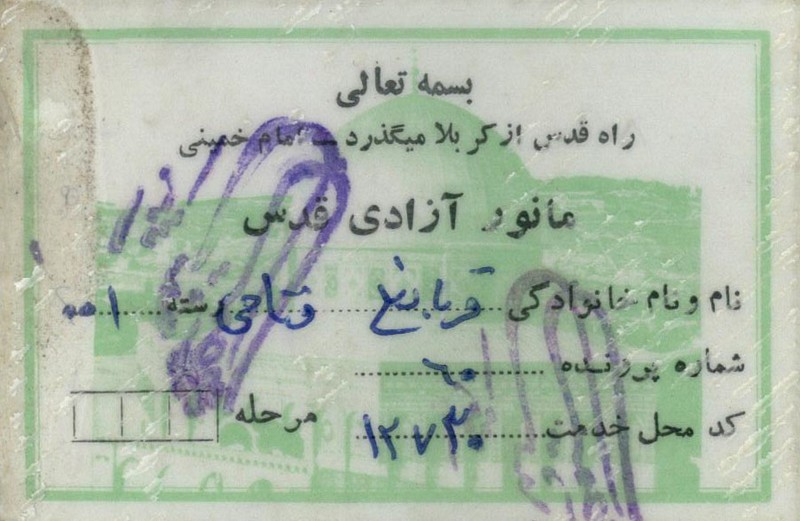 بسمه تعالی
راه قدس از کربلا میگذرد ــ امام خمینی
مانور آزادی قدس
نام و نام خانوادگی قربانعلی فتاحی رسته ۰۰۱
شماره پرونده ۶۰
کد محل خدمت ۱۲۷۳۰ مرحله